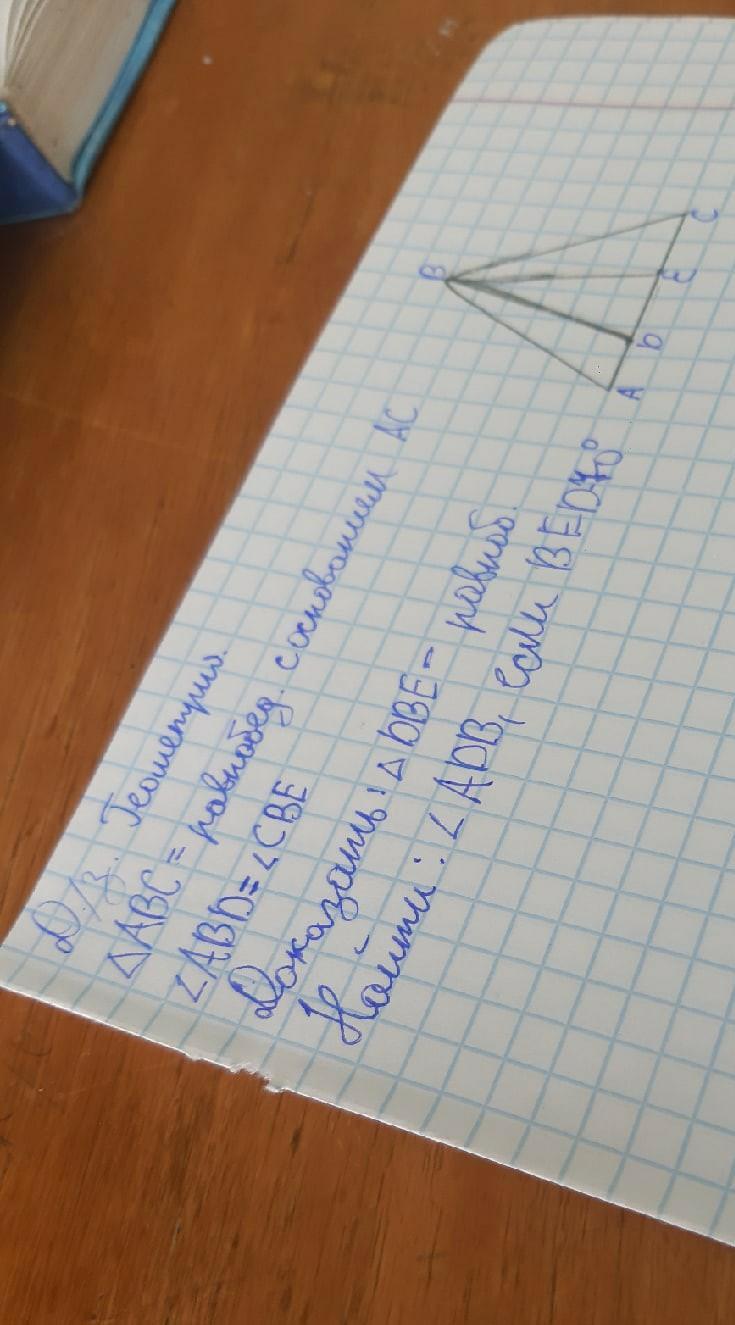 Д/з. Геометрия.
△ABC = равнобед. с основанием AC
∠ABD = ∠CBE
Доказать: △DBE - равноб.
Найти: ∠ADB, если BED 70°
B
A
D
E
C